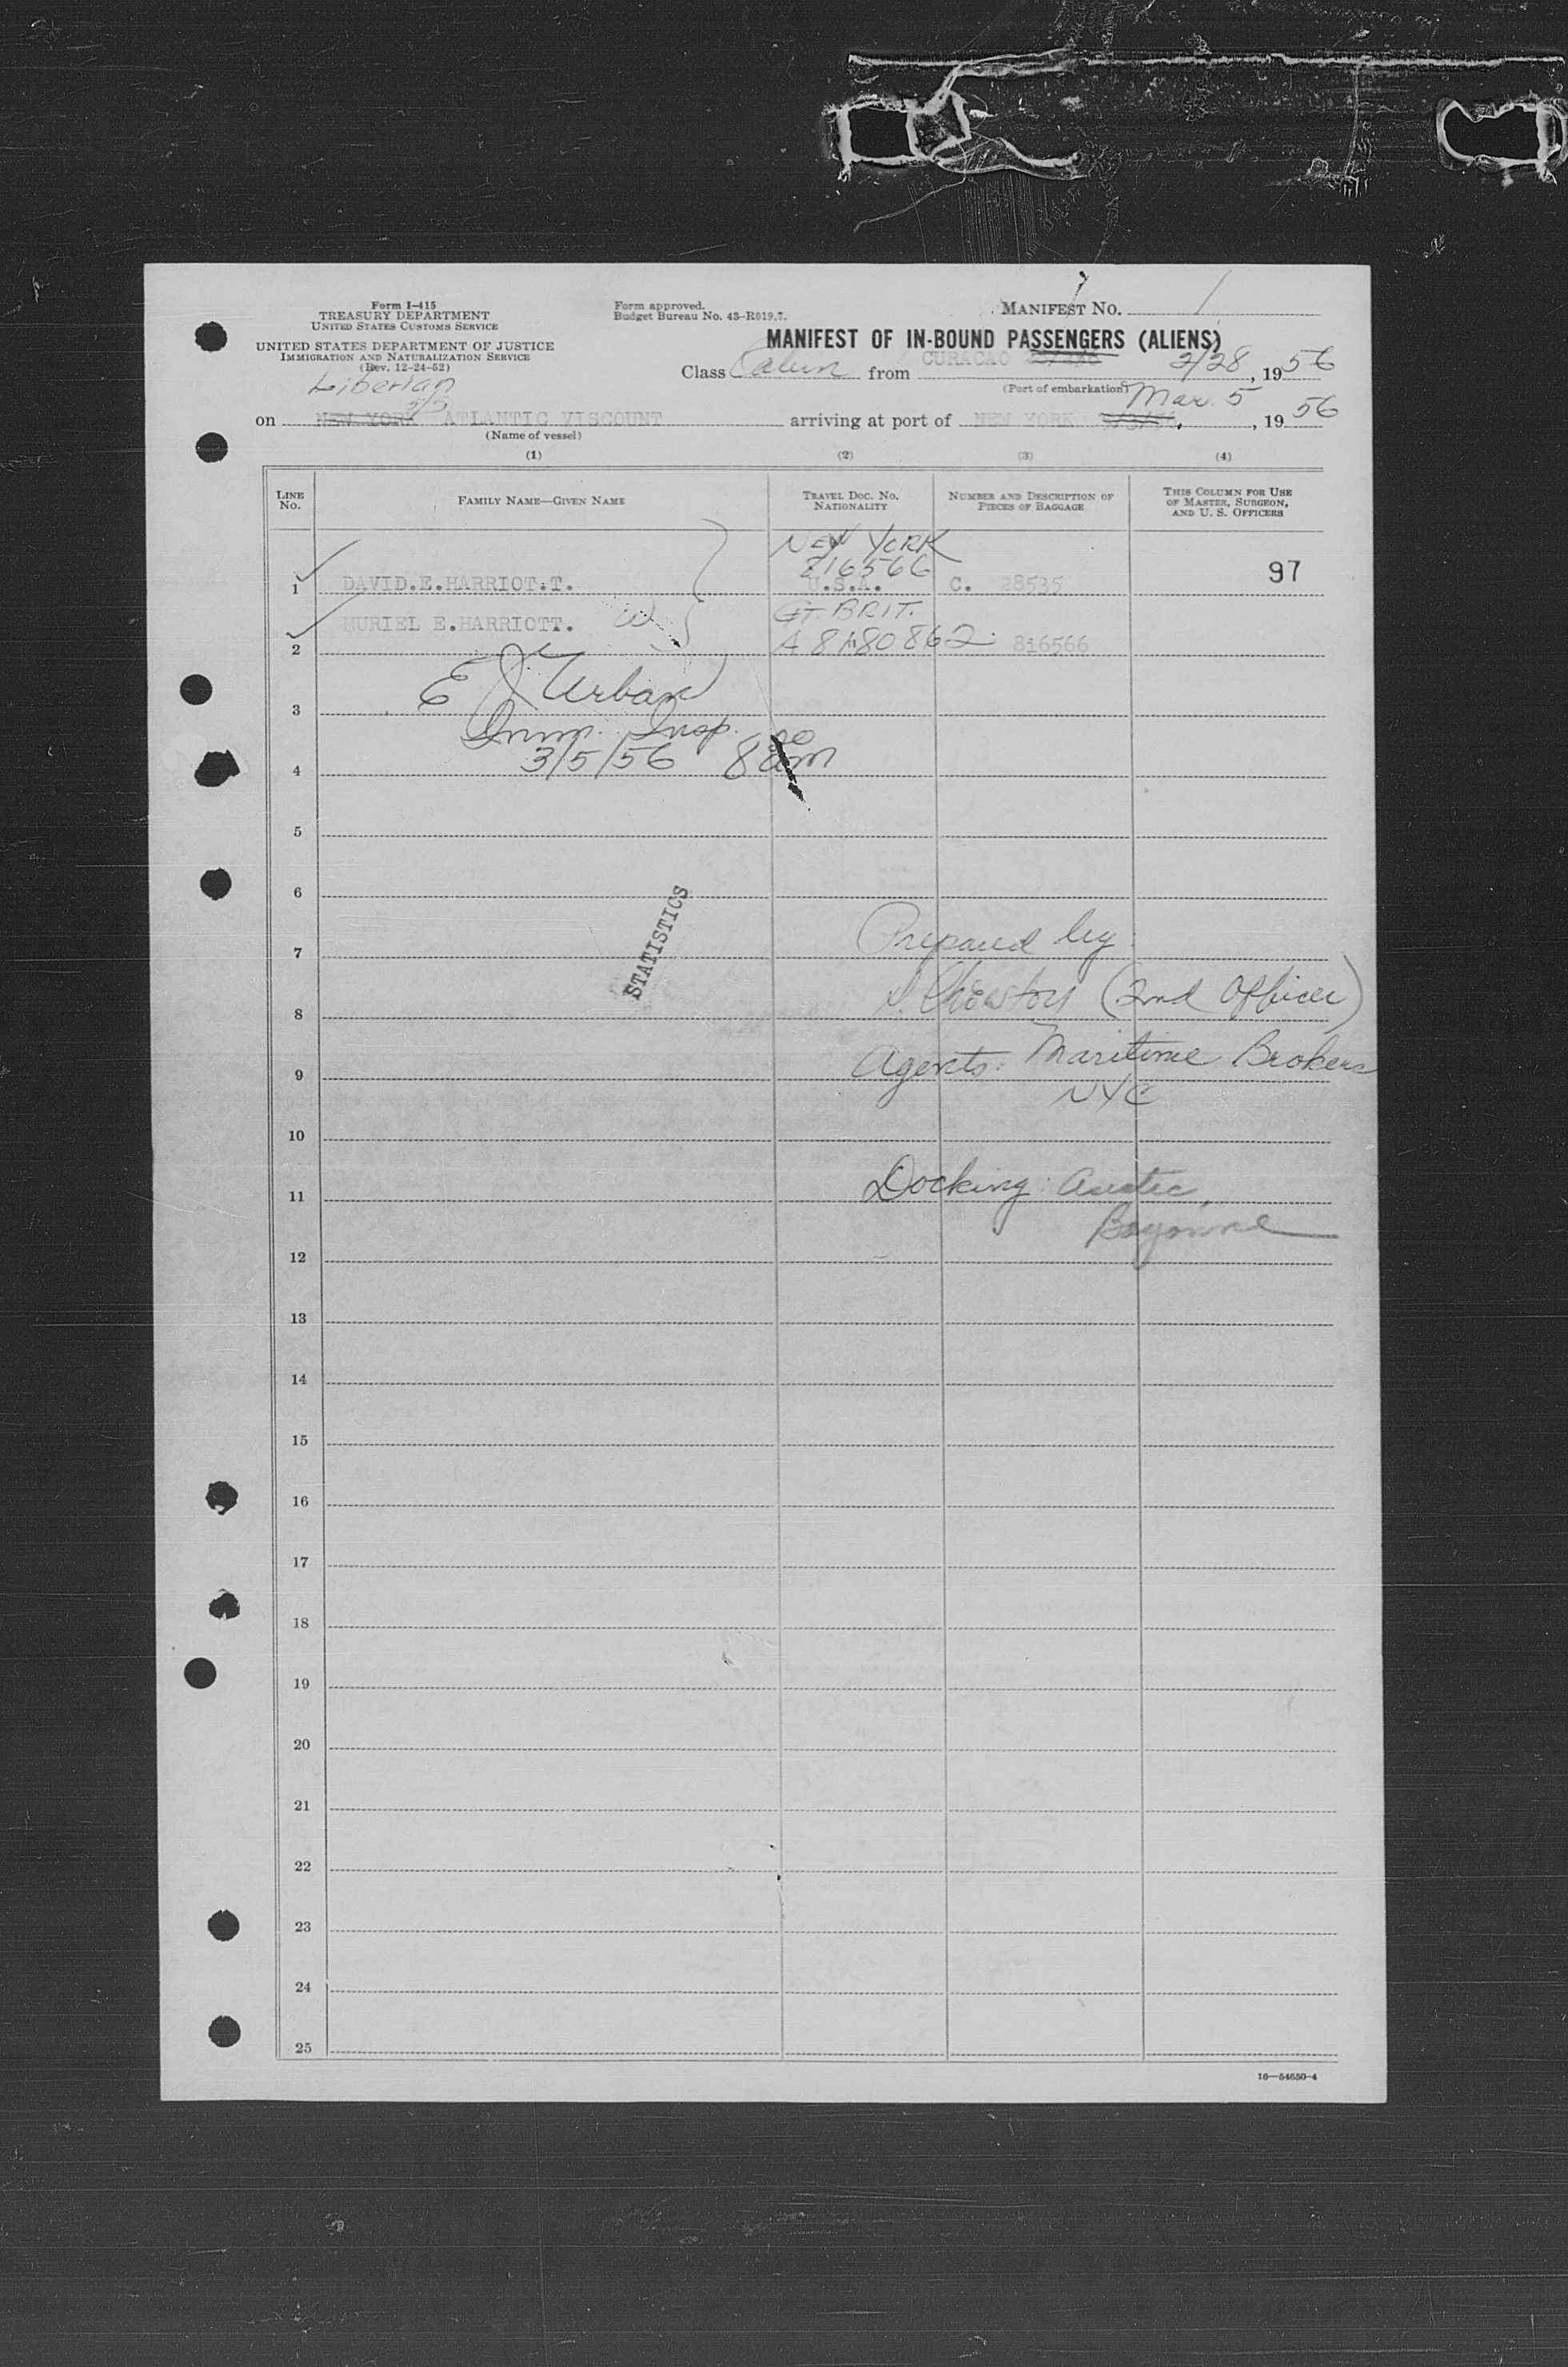 Form I-415
TREASURY DEPARTMENT
UNITED STATES CUSTOMS SERVICE
UNITED STATES DEPARTMENT OF JUSTICE
IMMIGRATION AND NATURALIZATION SERVICE
(Rev. 12-24-52)
Form approved.
Budget Bureau No. 43-R019.7.
MANIFEST No. 1
MANIFEST OF IN-BOUND PASSENGERS (ALIENS)
Class Cabin from CURACAO 2/28, 1956
(Port of embarkation)
Liberian
S/S
on NEW YORK ATLANTIC VISCOUNT arriving at port of NEW YORK Mar. 5, 1956
(Name of vessel)
(1) (2) (3) (4)
LINE No. FAMILY NAME—GIVEN NAME TRAVEL DOC. No. NATIONALITY NUMBER AND DESCRIPTION OF PIECES OF BAGGAGE THIS COLUMN FOR USE OF MASTER, SURGEON, AND U. S. OFFICERS
NEW YORK
216566
1 DAVID.E.HARRIOT.T. U.S.A. C. 28535 97
MURIEL E.HARRIOTT. W GT. BRIT.
2 816566
E J Urban
3
Imm. Insp.
3/5/56 8 00 am
4
5
6
STATISTICS
Prepared by
7
(2nd Officer)
8
Agents: Maritime Brokers
9
NYC
10
Docking: Asiatic,
11
Bayonne
12
13
14
15
16
17
18
19
20
21
22
23
24
25
16—54650-4